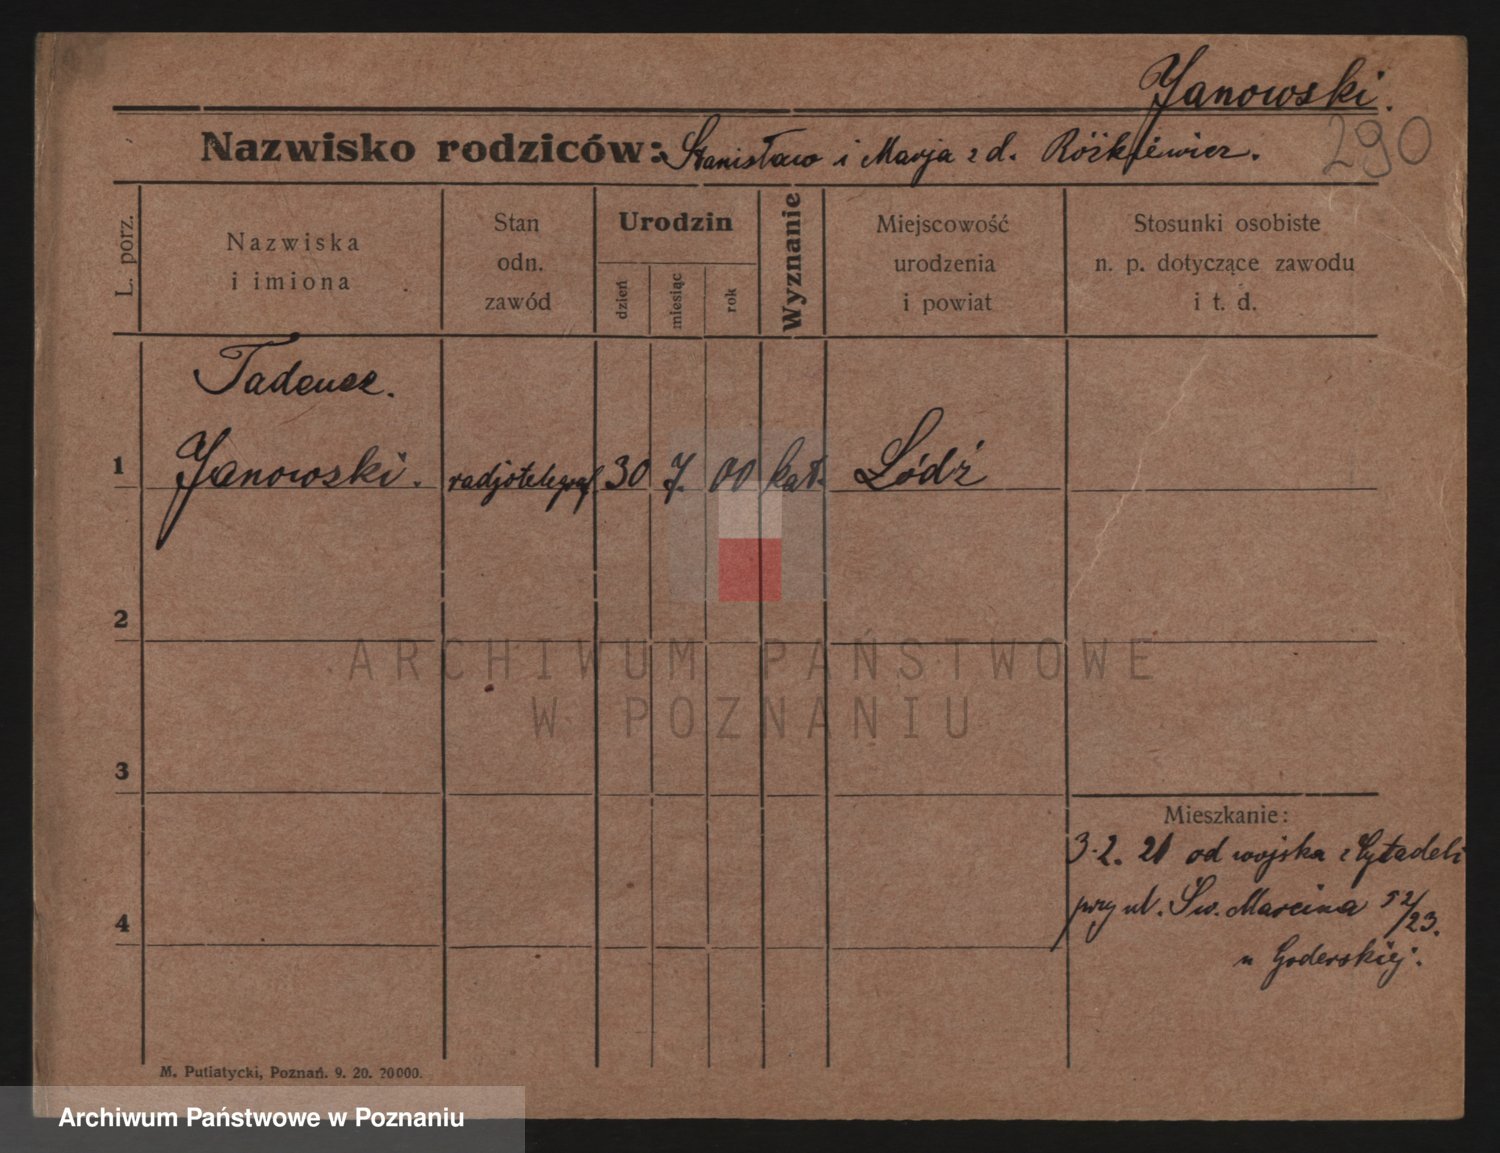 Janowski.
290
Nazwisko rodziców: Stanisław i Marja z d. Różkiewicz.
L. porz.
Nazwiska
i imiona
Stan
odn.
zawód
Urodzin
dzień
miesiąc
rok
Wyznanie
Miejscowość
urodzenia
i powiat
Stosunki osobiste
n. p. dotyczące zawodu
i t. d.
Tadeusz.
1 Janowski. radjotelegraf 30 7. 00 kat. Łódź
2
ARCHIWUM PAŃSTWOWE
W POZNANIU
3
Mieszkanie:
3.2.21 od wojska z Cytadeli
przy ul. Św. Marcina 52/23.
4
u Goderskiej.
M. Putiatycki, Poznań. 9. 20. 20000.
Archiwum Państwowe w Poznaniu